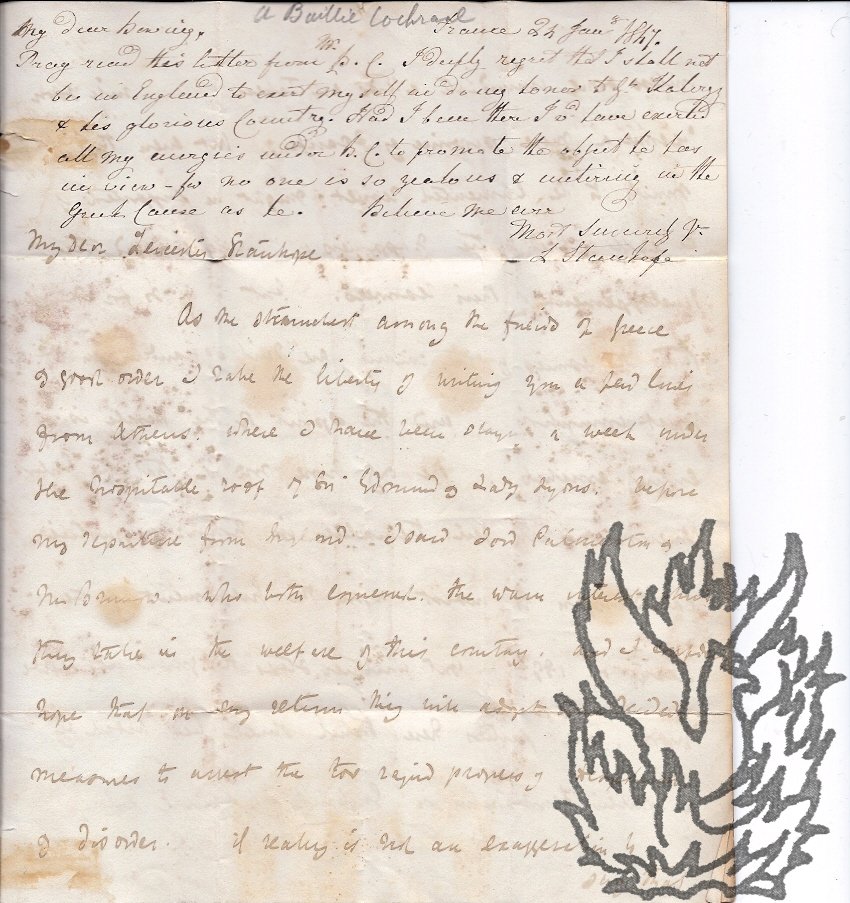 A Baillie Cochrane
My dear Bowring, France 24 Jany 1847.
Pray read this letter from Mr B. C. I deeply regret that I shall not
be in England to exert myself in doing honor to
& his glorious Country. Had I been there I wd have exerted
all my energies under B. C. to promote the object he has
in view – for no one is so zealous & untiring in the
Greek Cause as he. Believe me ever
Most Sincerely Yr
L Stanhope
My dear Leicester Stanhope
As the staunchest among the friends of Greece
& good order I take the liberty of writing you a few lines
from Athens. where I have been a week under
the hospitable roof of Sir Edmund & Lady Lyons. Before
my departure from England I saw Lord Palmerston &
who both expressed. the warm interest
they take in the welfare of this country. and I
hope that on my return they will adopt decided
measures to arrest the too rapid progress of
& disorder. it really is not an exaggeration to